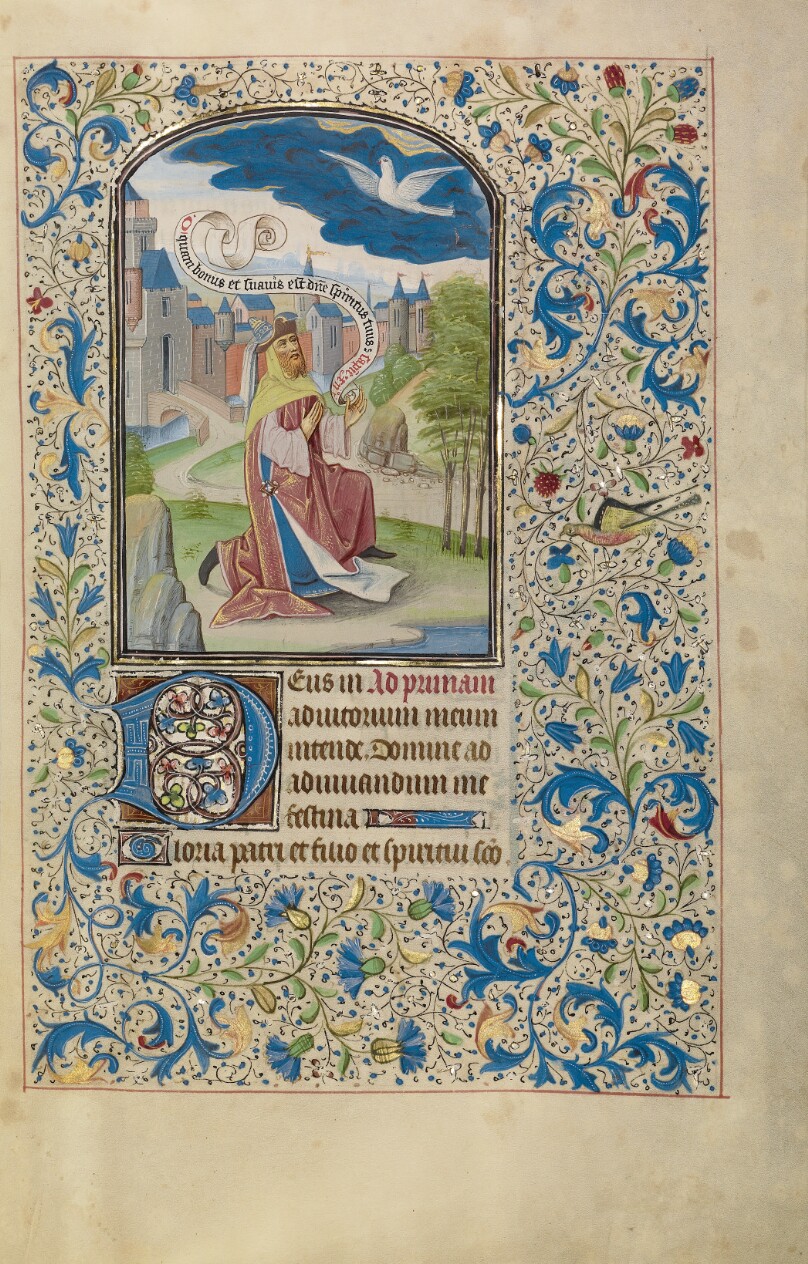 O quam bonus et suavis est dñe spiritus tuus
Eus in Ad primam
adiutorium meum
intende. Domine ad
adiuuandum me
festina
Gloria patri et filio et spiritui sco